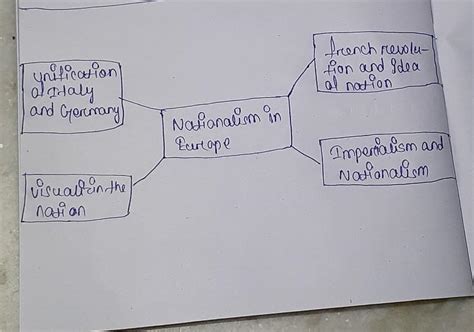 Unification
of Italy
and Germany
french revolu-
tion and Idea
of nation
Nationalism in
Europe
Imperialism and
Nationalism
visualizin the
nation